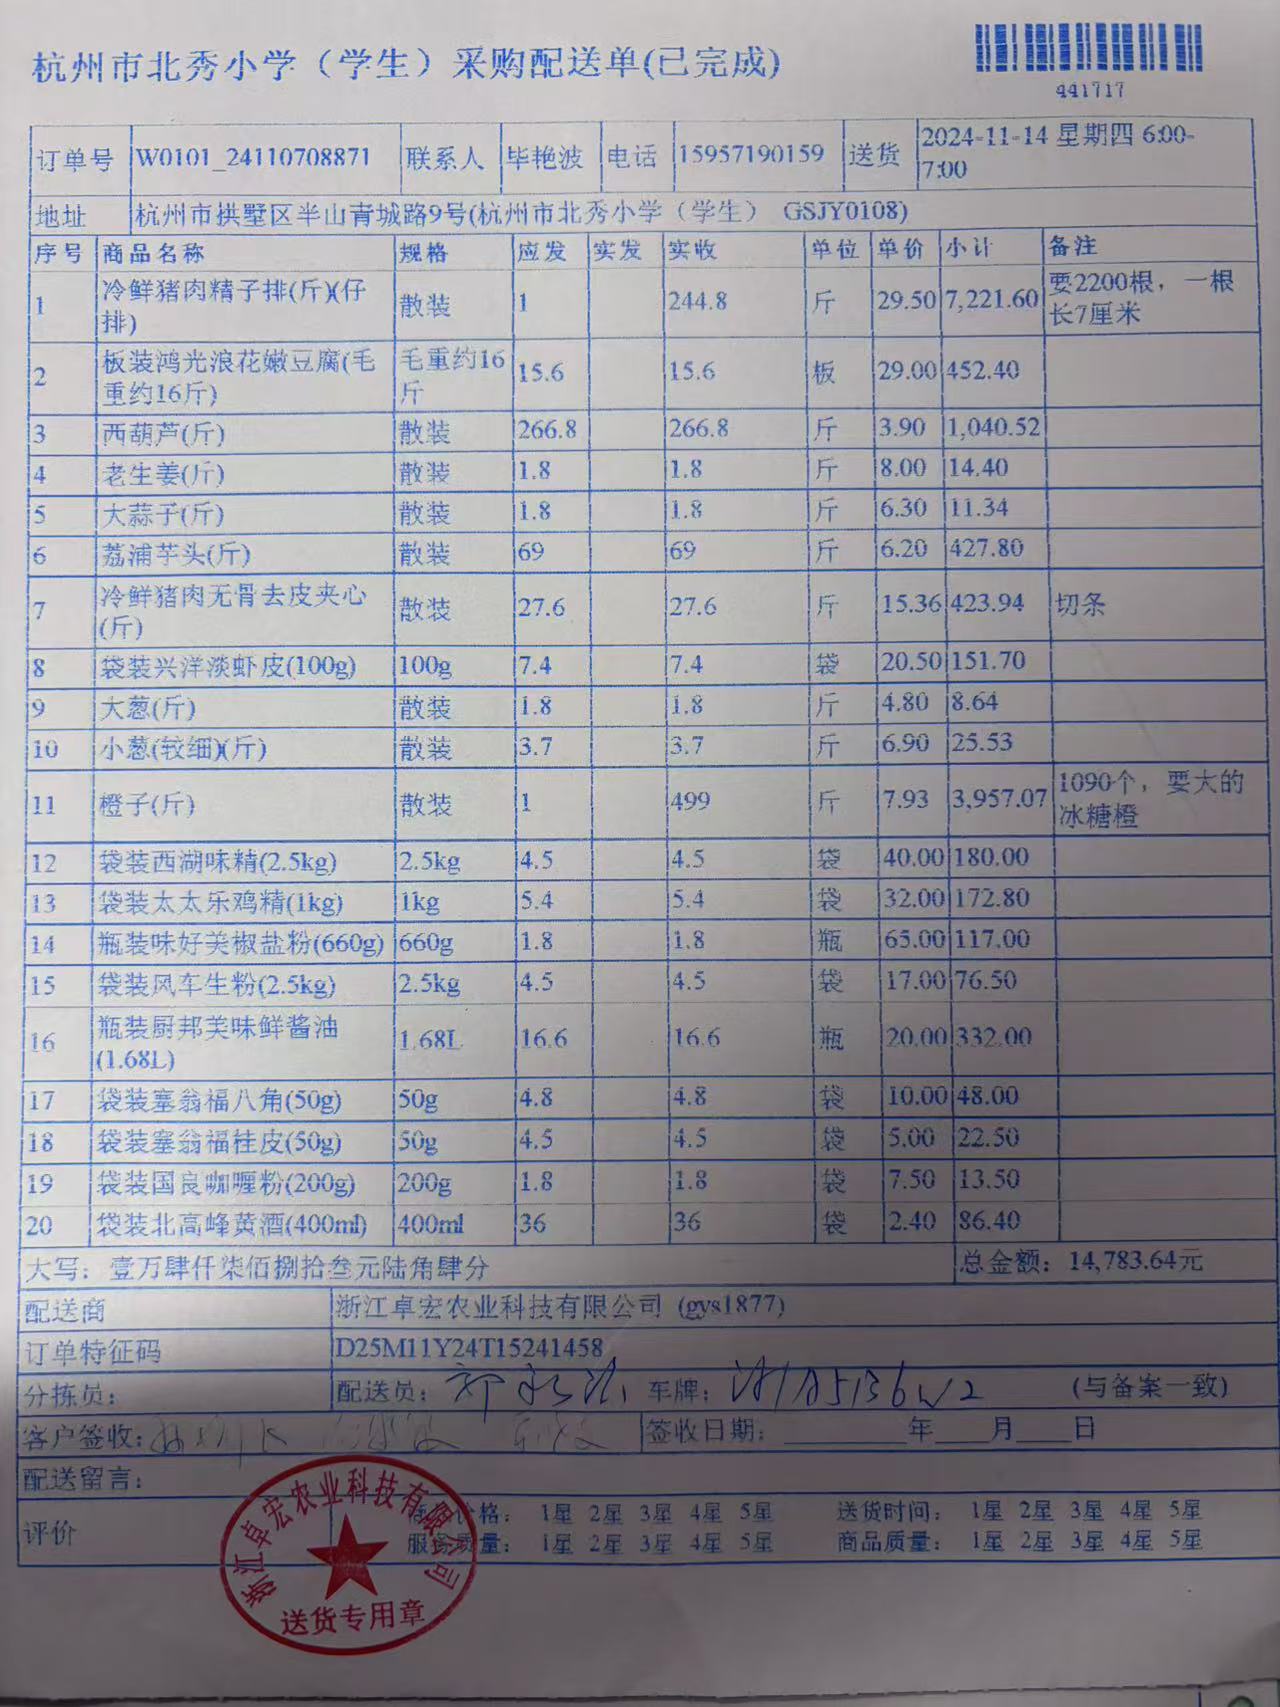 杭州市北秀小学（学生）采购配送单(已完成)
441717
订单号 W0101_24110708871 联系人 毕艳波 电话 15957190159 送货 2024-11-14 星期四 6:00-
7:00
地址 杭州市拱墅区半山青城路9号(杭州市北秀小学（学生） GSJY0108)
序号 商品名称 规格 应发 实发 实收 单位 单价 小计 备注
1 冷鲜猪肉精子排(斤)(仔排) 散装 1 244.8 斤 29.50 7,221.60 要2200根，一根长7厘米
2 板装鸿光浪花嫩豆腐(毛重约16斤) 毛重约16斤 15.6 15.6 板 29.00 452.40
3 西葫芦(斤) 散装 266.8 266.8 斤 3.90 1,040.52
4 老生姜(斤) 散装 1.8 1.8 斤 8.00 14.40
5 大蒜子(斤) 散装 1.8 1.8 斤 6.30 11.34
6 荔浦芋头(斤) 散装 69 69 斤 6.20 427.80
7 冷鲜猪肉无骨去皮夹心(斤) 散装 27.6 27.6 斤 15.36 423.94 切条
8 袋装兴洋淡虾皮(100g) 100g 7.4 7.4 袋 20.50 151.70
9 大葱(斤) 散装 1.8 1.8 斤 4.80 8.64
10 小葱(较细)(斤) 散装 3.7 3.7 斤 6.90 25.53
11 橙子(斤) 散装 1 499 斤 7.93 3,957.07 1090个，要大的冰糖橙
12 袋装西湖味精(2.5kg) 2.5kg 4.5 4.5 袋 40.00 180.00
13 袋装太太乐鸡精(1kg) 1kg 5.4 5.4 袋 32.00 172.80
14 瓶装味好美椒盐粉(660g) 660g 1.8 1.8 瓶 65.00 117.00
15 袋装风车生粉(2.5kg) 2.5kg 4.5 4.5 袋 17.00 76.50
16 瓶装厨邦美味鲜酱油(1.68L) 1.68L 16.6 16.6 瓶 20.00 332.00
17 袋装塞翁福八角(50g) 50g 4.8 4.8 袋 10.00 48.00
18 袋装塞翁福桂皮(50g) 50g 4.5 4.5 袋 5.00 22.50
19 袋装国良咖喱粉(200g) 200g 1.8 1.8 袋 7.50 13.50
20 袋装北高峰黄酒(400ml) 400ml 36 36 袋 2.40 86.40
大写：壹万肆仟柒佰捌拾叁元陆角肆分 总金额：14,783.64元
配送商 浙江卓宏农业科技有限公司 (gys1877)
订单特征码 D25M11Y24T15241458
分拣员： 配送员： 车牌： (与备案一致)
客户签收： 签收日期：______年___月___日
配送留言：
评价 价格： 1星 2星 3星 4星 5星 送货时间： 1星 2星 3星 4星 5星
服务质量： 1星 2星 3星 4星 5星 商品质量： 1星 2星 3星 4星 5星
浙江卓宏农业科技有限公司
送货专用章